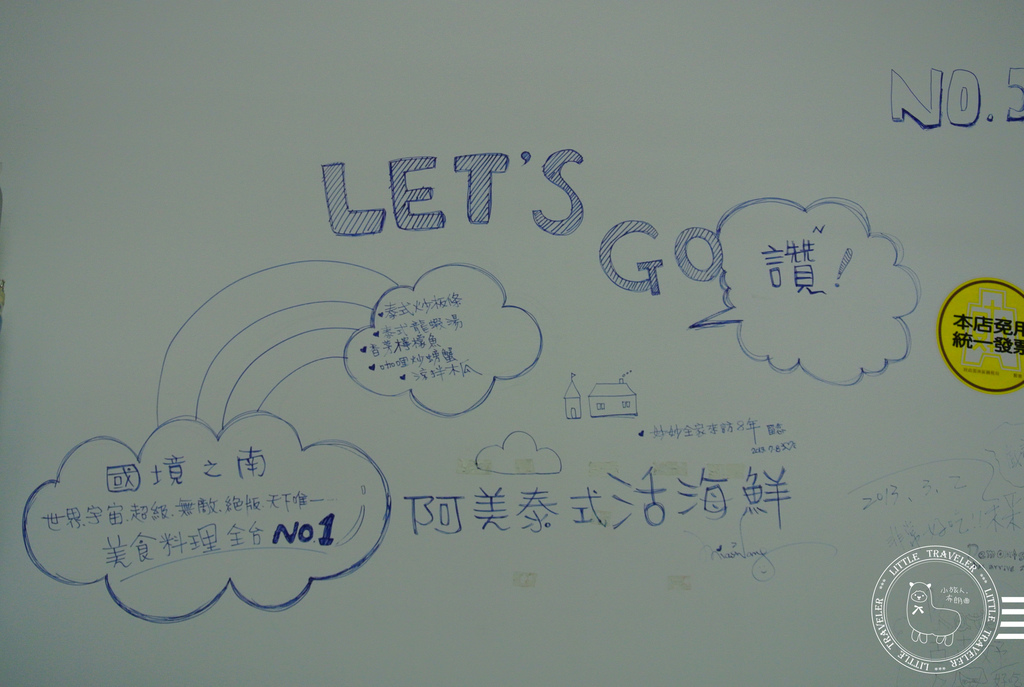 NO.
LET'S
GO
讚!
泰式炒板條
泰式龍蝦湯
香茅檸檬魚
咖喱炒螃蟹
涼拌木瓜
本店免用
統一發票
國境之南
世界.宇宙.超級.無敵.絕版.天下唯一…
美食料理全台NO1
妙妙全家來訪8年
阿美泰式活海鮮
2013.3.2
非常好吃!
LITTLE TRAVELER
LITTLE TRAVELER
LITTLE TRAVELER
小旅人.